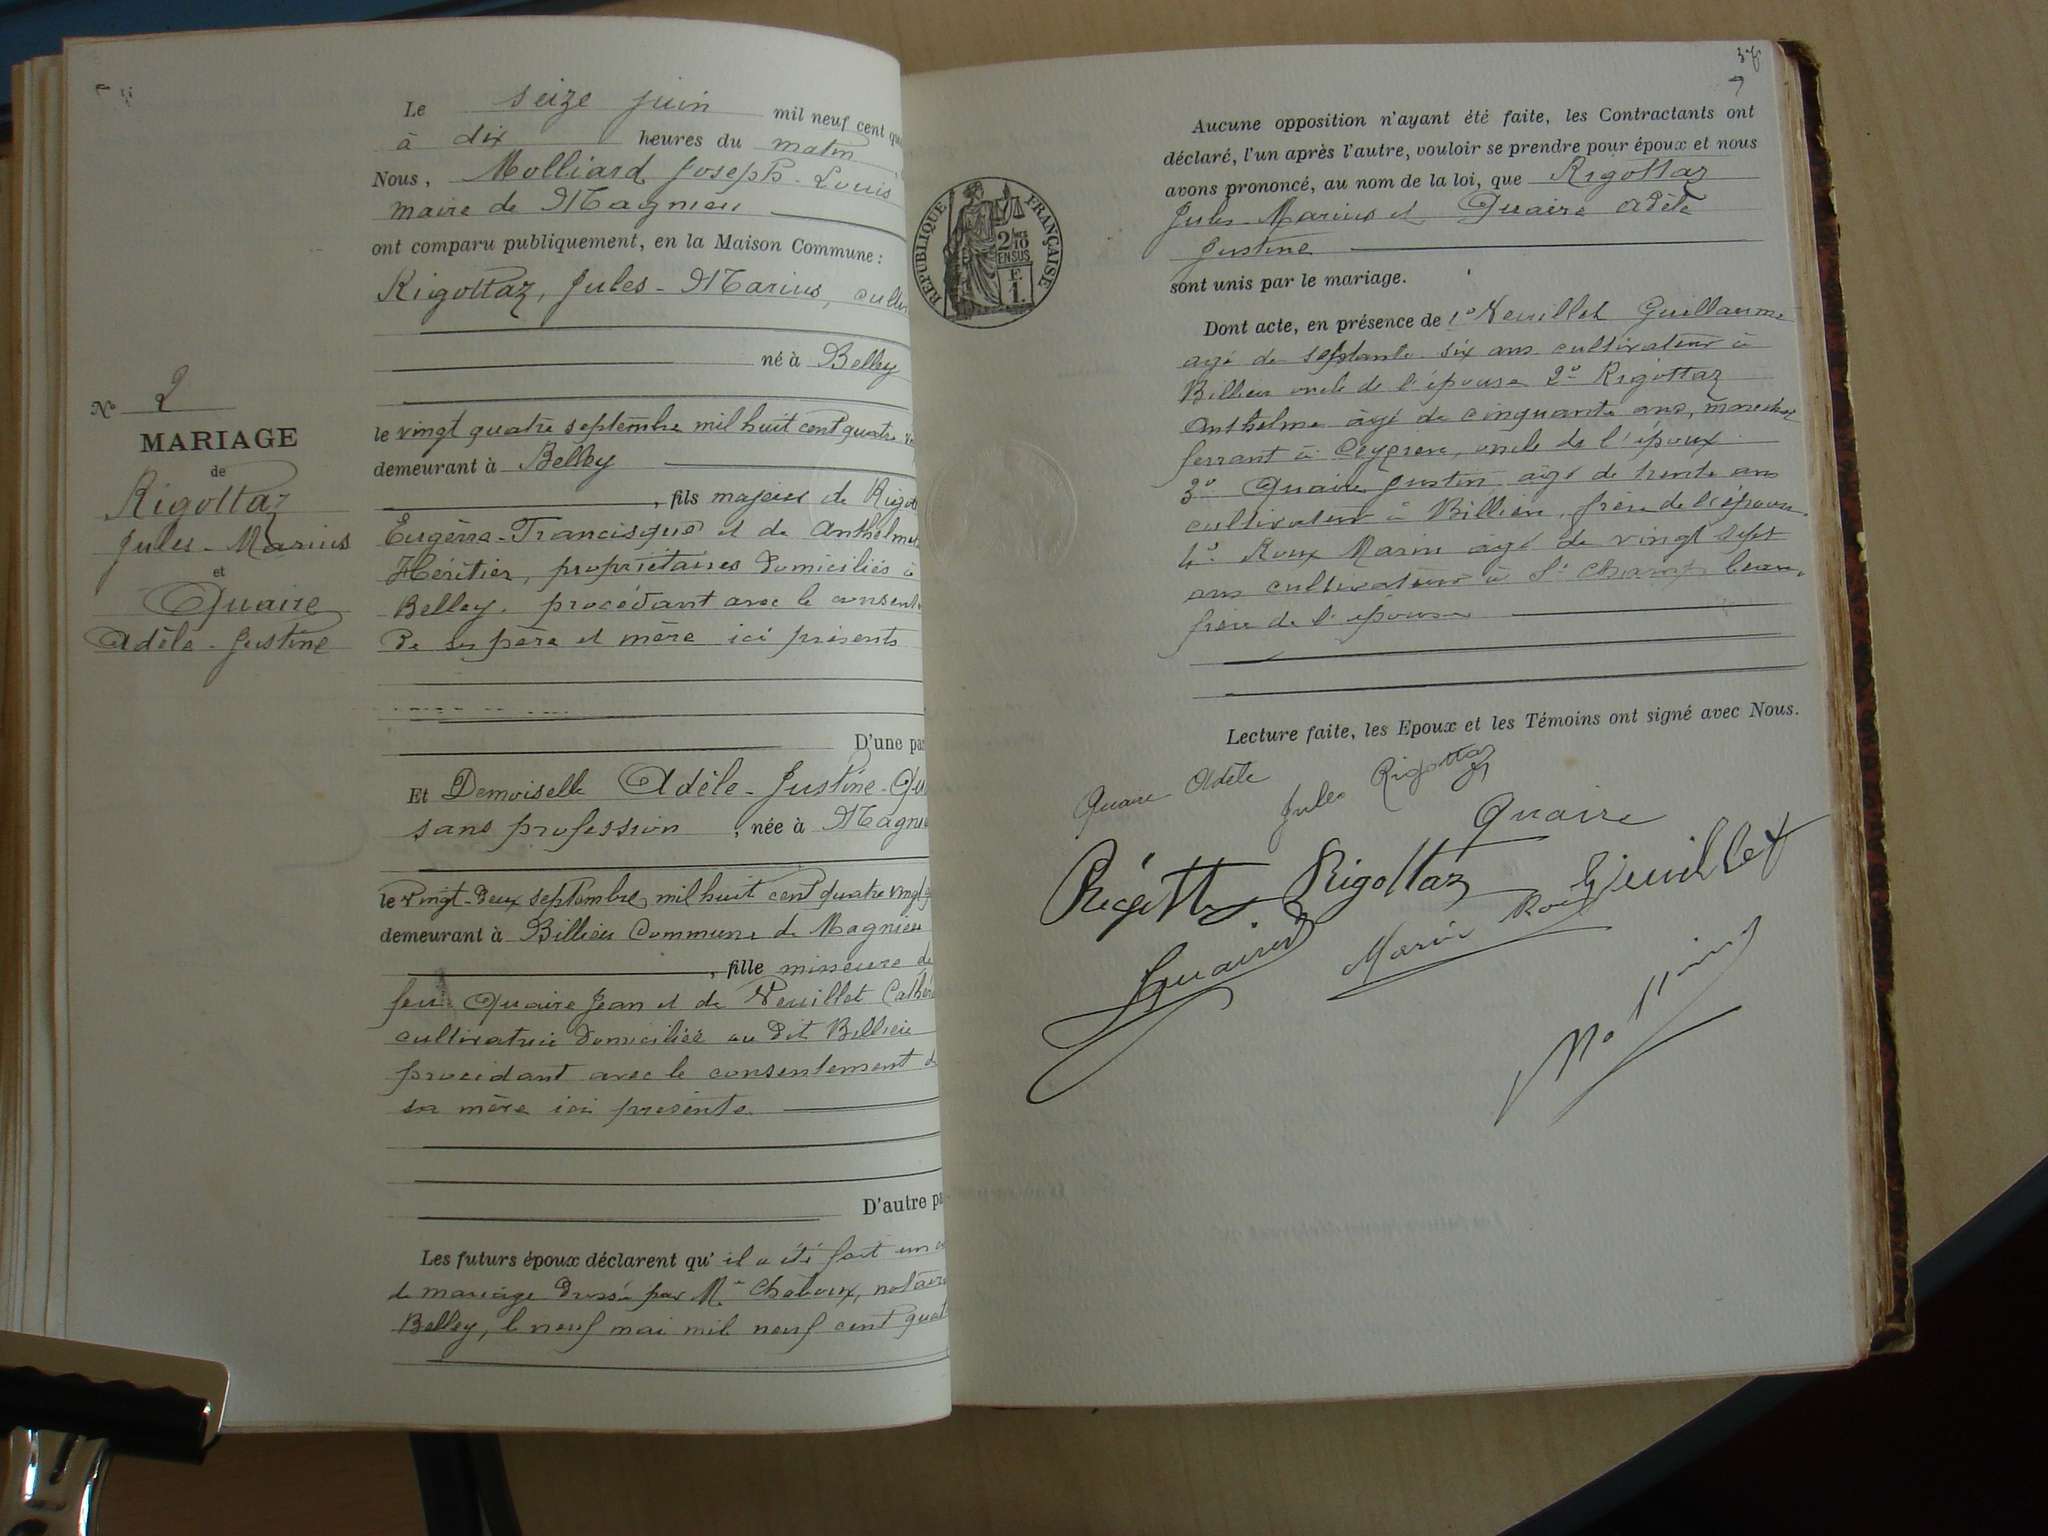 Le seize juin mil neuf cent
à dix heures du matin
Nous, Molliard Joseph-Louis
maire de Magnieu
ont comparu publiquement, en la Maison Commune :
Rigottaz, Jules-Marius,
né à Belley
le vingt quatre septembre mil huit cent quatre
demeurant à Belley
, fils majeur de
Eugène-Francisque et de Anthelme
Héritier, propriétaires domiciliés à
Belley, procédant avec le
de ses père et mère ici présents
D'une
Et Demoiselle Adèle-Justine
sans profession, née à
le vingt-deux septembre mil huit cent quatre vingt
demeurant à Billieu Commune de Magnieu
, fille mineure de
feu Quaire Jean et de Neuillet
cultivatrice domiciliée au dit Billieu
procédant avec le consentement
sa mère ici présente
D'autre
Les futurs époux déclarent qu'il a été fait un
de mariage dressé par Me Chaboux,
Belley, le neuf mai mil neuf cent
No 2
MARIAGE
de
Rigottaz
Jules-Marius
et
Quaire
Adèle-Justine
RÉPUBLIQUE FRANÇAISE
2/10
EN SUS
F.
1.
Aucune opposition n'ayant été faite, les Contractants ont
déclaré, l'un après l'autre, vouloir se prendre pour époux et nous
avons prononcé, au nom de la loi, que Rigottaz
Jules-Marius et Quaire Adèle
Justine
sont unis par le mariage.
Dont acte, en présence de 1º Neuillet Guillaume
agé de septante six ans cultivateur à
Billieu oncle de l'épouse 2º Rigottaz
Anthelme âgé de cinquante ans, marechal
ferrant à Ceyzerieu, oncle de l'époux
3º Quaire Justin âgé de trente ans
cultivateur à Billieu, frère de l'épouse.
4º Roux Marin âgé de vingt sept
ans cultivateur à St Champ beau-
frère de l'épouse
Lecture faite, les Epoux et les Témoins ont signé avec Nous.
Quaire Adèle
Jules Rigottaz
Quaire
Rigottaz
Neuillet
Marin Roux